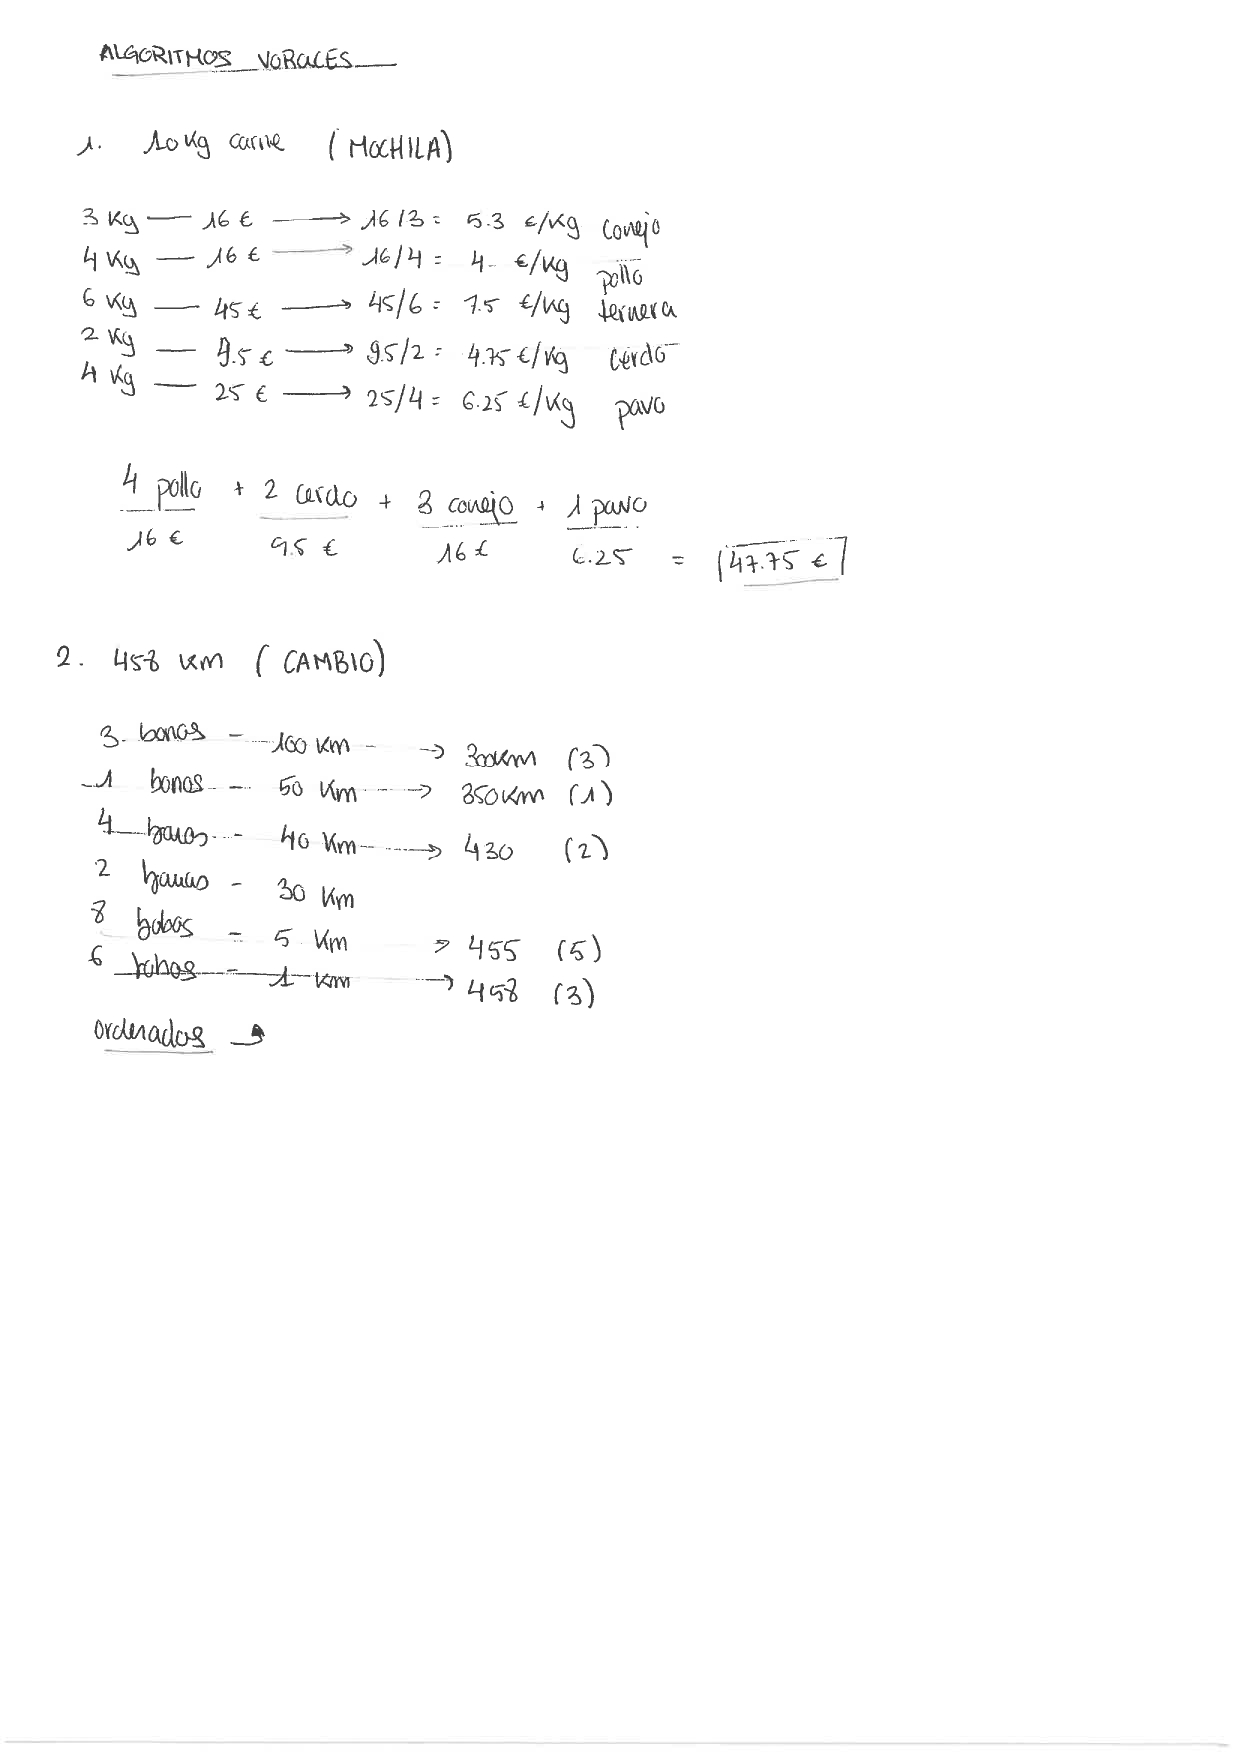 ALGORITMOS VORACES
1. 10 Kg carne (MOCHILA)
3 Kg — 16 € → 16/3 = 5.3 €/Kg conejo
4 Kg — 16 € → 16/4 = 4 €/Kg pollo
6 Kg — 45 € → 45/6 = 7.5 €/Kg ternera
2 Kg — 9.5 € → 9.5/2 = 4.75 €/Kg cerdo
4 Kg — 25 € → 25/4 = 6.25 €/Kg pavo
4 pollo + 2 cerdo + 3 conejo + 1 pavo
16 € 9.5 € 16 € 6.25 = 47.75 €
2. 458 Km (CAMBIO)
3 bonos - 100 Km → 300Km (3)
1 bonos - 50 Km → 350Km (1)
4 bonos - 40 Km → 430 (2)
2 bonos - 30 Km
8 bobos - 5 Km → 455 (5)
6 bonos - 1 Km → 458 (3)
ordenados